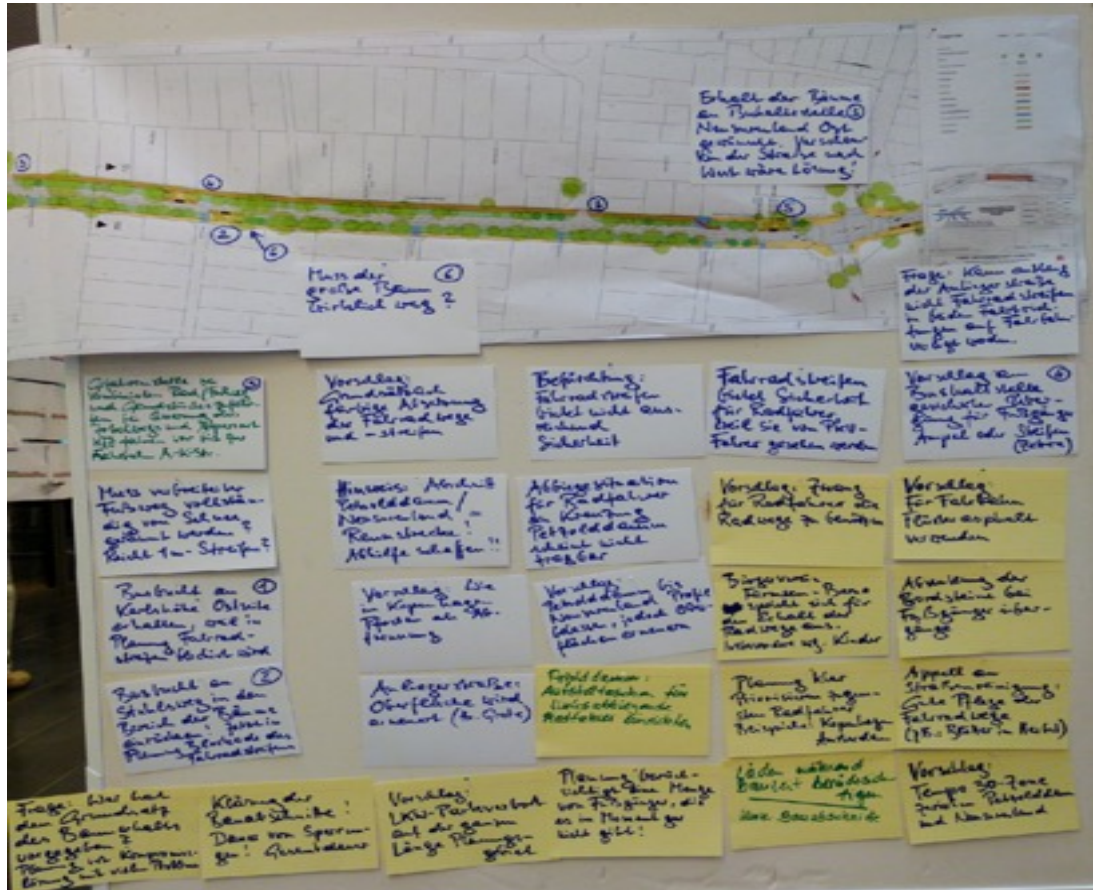 Erhalt der Bäume
an Bushaltestelle 5
Neusurenland Ost
gewünscht. Verschieben
in der Straße nach
West wäre Lösung!
3
4
2
6
5
Muss der 6
große Baum
wirklich weg?
Frage: Kann entlang
der Anliegerstraße
nicht Fahrradstreifen
in beiden Fahrtrich-
tungen auf Fahrbahn
werden.
3
und
Vorschlag:
Grundsätzlich
farbige Absetzung
der Fahrradwege
und -streifen
Befürchtung:
Fahrradstreifen
bietet nicht aus-
reichend
Sicherheit
Fahrradstreifen
bietet Sicherheit
für Radfahrer
weil sie von PKW-
Fahrer gesehen werden
Vorschlag an 4
Bushaltestelle
gesicherte Über-
gang für Fußgänger
Ampel oder Streifen
(Zebra)
Muss verbreiteter
Fußweg vollstän-
dig von Schnee
geräumt werden
Reicht 1m-Streifen?
Hinweis: Abschnitt
Pezolddamm/
Neusurenland =
Rennstrecke!
Abhilfe schaffen!!
Abbiegesituation
für Radfahrer
an Kreuzung
Pezolddamm
scheint nicht
tragbar
Vorschlag: Zwang
für Radfahrer die
Radwege zu benutzen
Vorschlag:
für Fahrbahn
Flüsterasphalt
verwenden
Busbucht an 1
Karlshöhe Ostseite
erhalten, weil in
Planung Fahrrad-
streifen blockiert wird
Vorschlag: Wie
in Kopenhagen
Pfosten als Ab-
grenzung
Vorschlag:
Pezolddamm bis
Neusurenland Profil
belassen, jedoch Ober-
flächen erneuern
Bürgerverein
Farmsen-Berne
spricht sich für
den Erhalt der
Radwege aus.
insbesondere wg. Kinder
Absenkung der
Bordsteine bei
Fußgängerüber-
gänge
Busbucht an 2
Stühlsweg in den
Bereich der Bäume
einrücken! Jetzt in
Planung Blockade des
Fahrradstreifen
Anliegerstraße:
Oberfläche wird
erneuert (s. Grote)
für
Linksabbiegende
einrichten
Planung hier
Priorisierung gegen-
über Radfahrer
Beispiele: Kopenhagen
Amsterdam
Appell an
Straßenreinigung:
Gute Pflege der
Fahrradwege
(z.B. Blätter im Herbst)
Frage: Wer hat
den Grundsatz
des Baumerhalts
vorgegeben?
Planung ist Kompromiss-
lösung mit vielen Problemen
Klärung der
Bauabschnitte!
Dauer von Sperrun-
gen! Gesamtdauer
Vorschlag:
LKW-Parkverbot
auf der ganzen
Länge Planungs-
gebiet
Planung berück-
sichtigt eine Menge
von Fußgänger, die
es im Moment gar
nicht gibt!
Läden während
Bauzeit berücksich-
tigen
Vorschlag:
Tempo 30-Zone
Pezolddamm
und Neusurenland